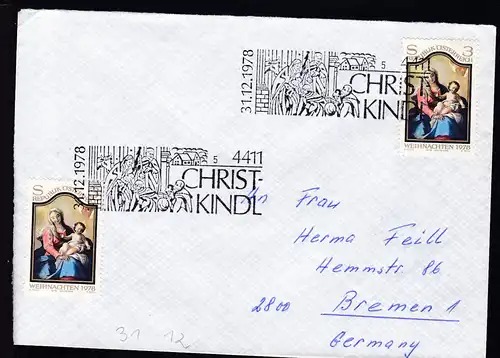 31.12.1978
5
CHRIST-
KINDL
S 3
REPUBLIK ÖSTERREICH
WEIHNACHTEN 1978
.12.1978
5 4411
CHRIST-
KINDL
S
REPUBLIK ÖSTERREICH
WEIHNACHTEN 1978
An Frau
Herma Feill
Hemmstr. 86
2800 Bremen 1
Germany
31 12